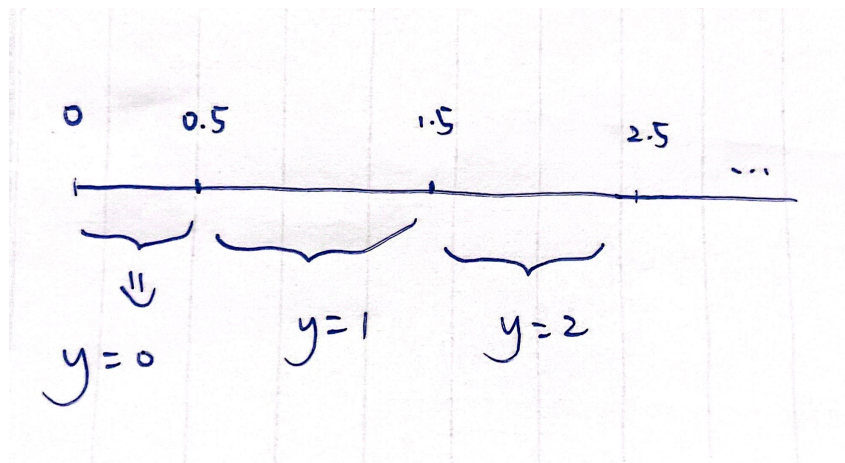 0 0.5 1.5 2.5
...
y=0 y=1 y=2